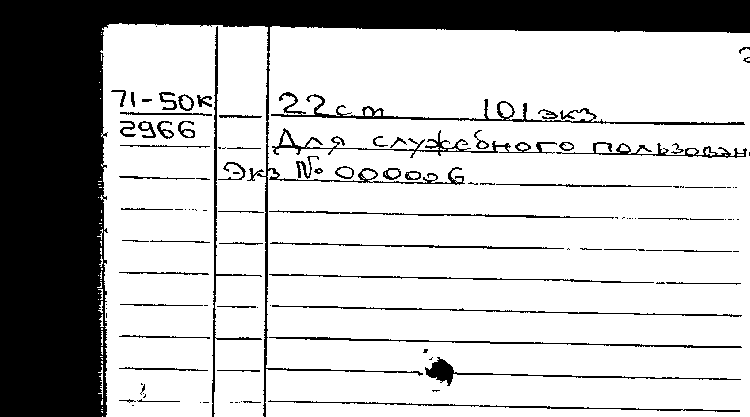 71-50к 22 cm 101 экз
2966
Для служебного пользован
Экз № 000006